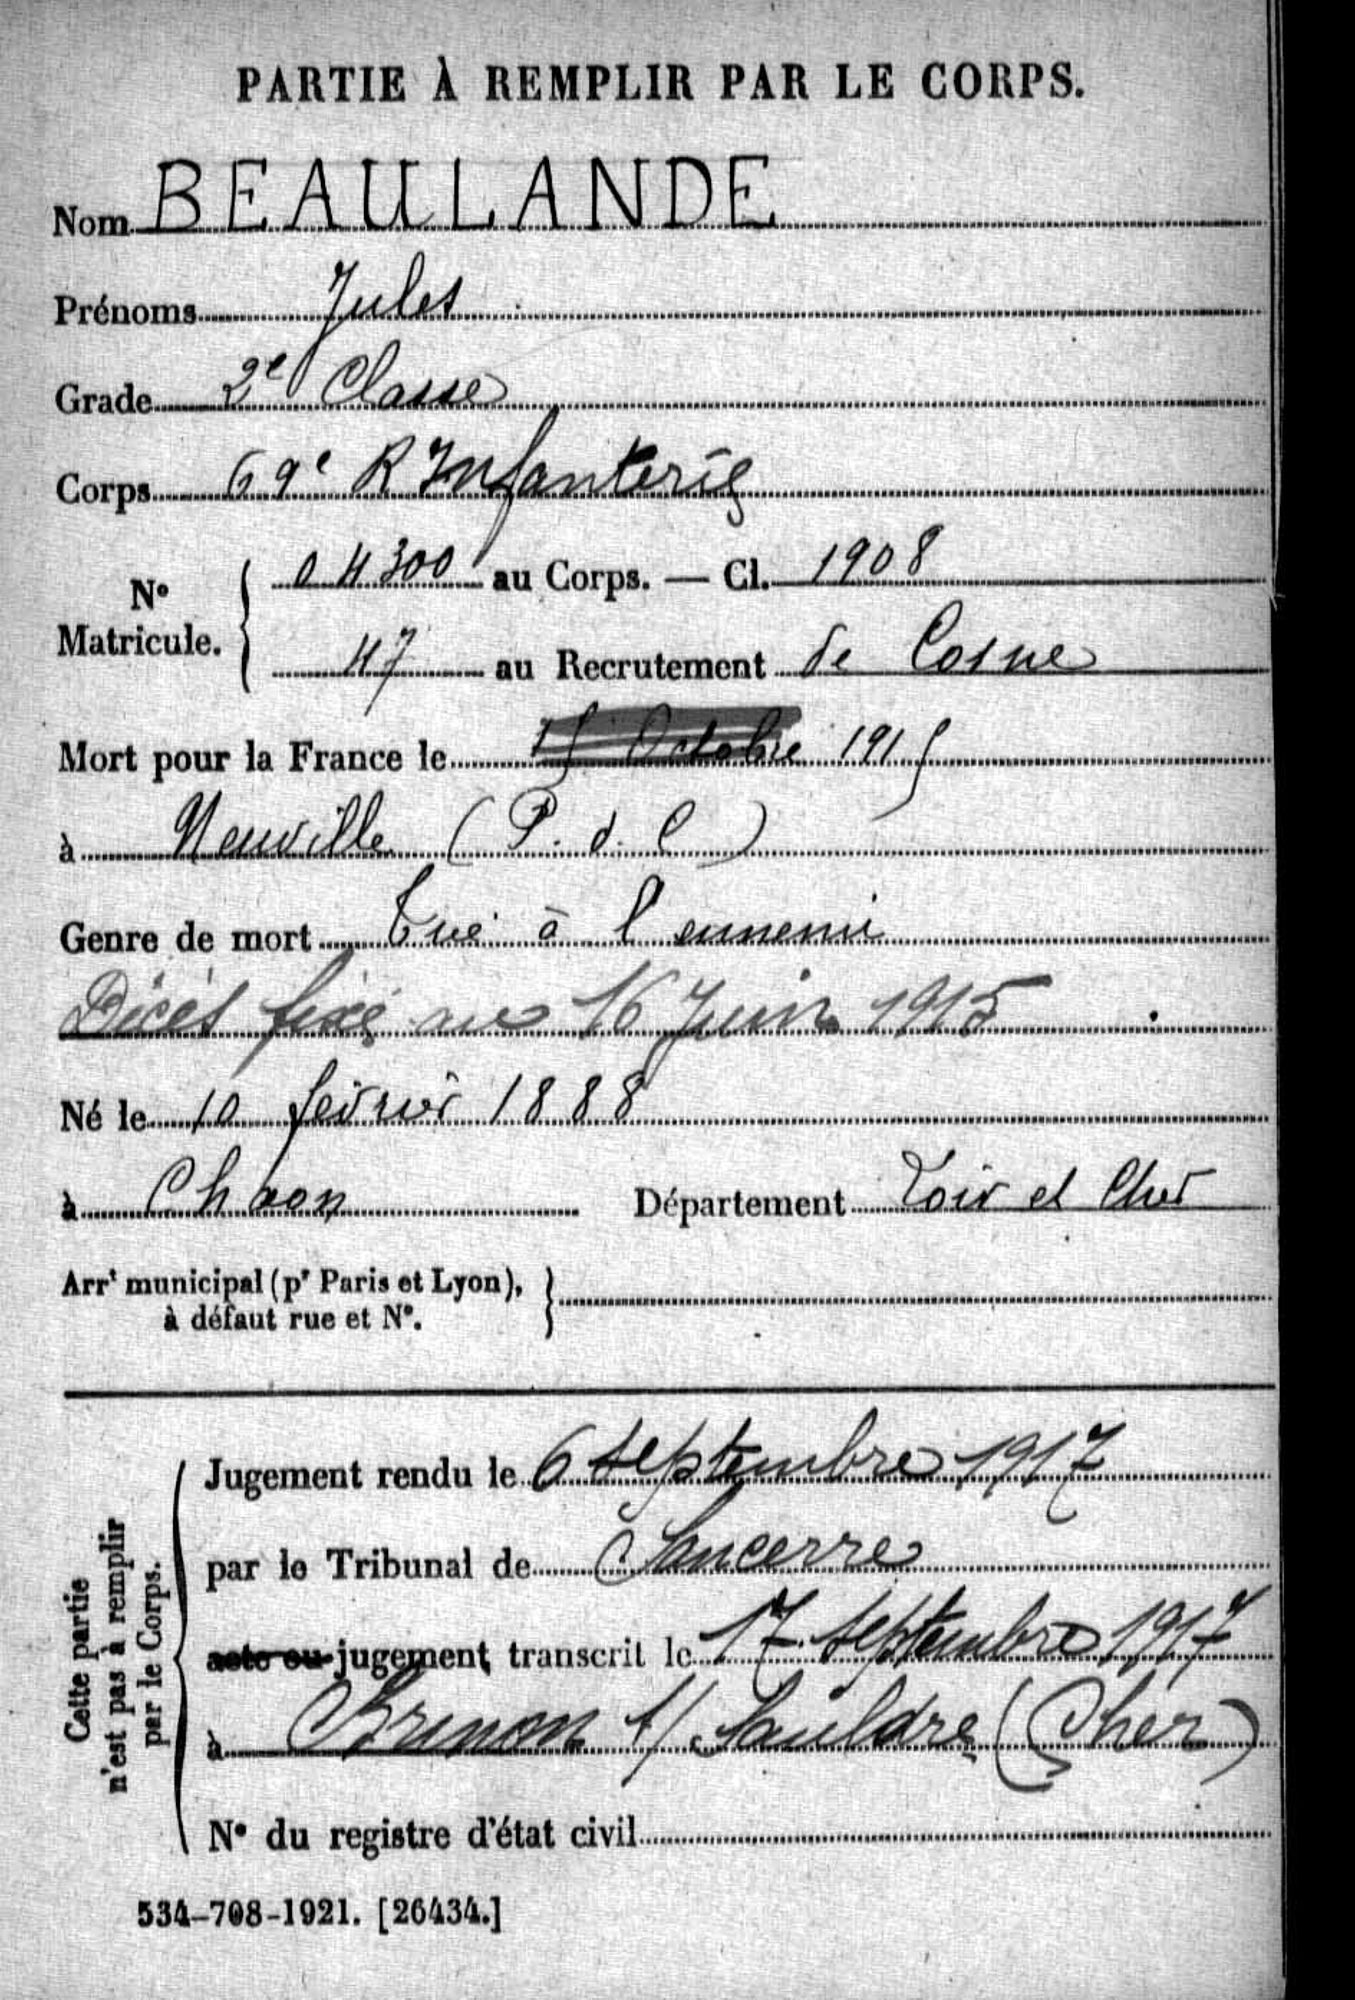 PARTIE À REMPLIR PAR LE CORPS.
Nom BEAULANDE
Prénoms Jules
Grade 2e Classe
Corps 69e R Infanterie
No Matricule. 04300 au Corps. — Cl. 1908
47 au Recrutement de Cosne
Mort pour la France le 15 Octobre 1915
à Neuville (P. d. C)
Genre de mort Tué à l'ennemi
Décès fixé au 16 Juin 1915
Né le 10 février 1888
à Chaon Département Loir et Cher
Arrt municipal (pr Paris et Lyon),
à défaut rue et No.
Cette partie
n'est pas à remplir
par le Corps.
Jugement rendu le 6 septembre 1917
par le Tribunal de Sancerre
acte ou jugement transcrit le 17 septembre 1917
à Brinon s/ Sauldre (Cher)
No du registre d'état civil
534-708-1921. [26434.]